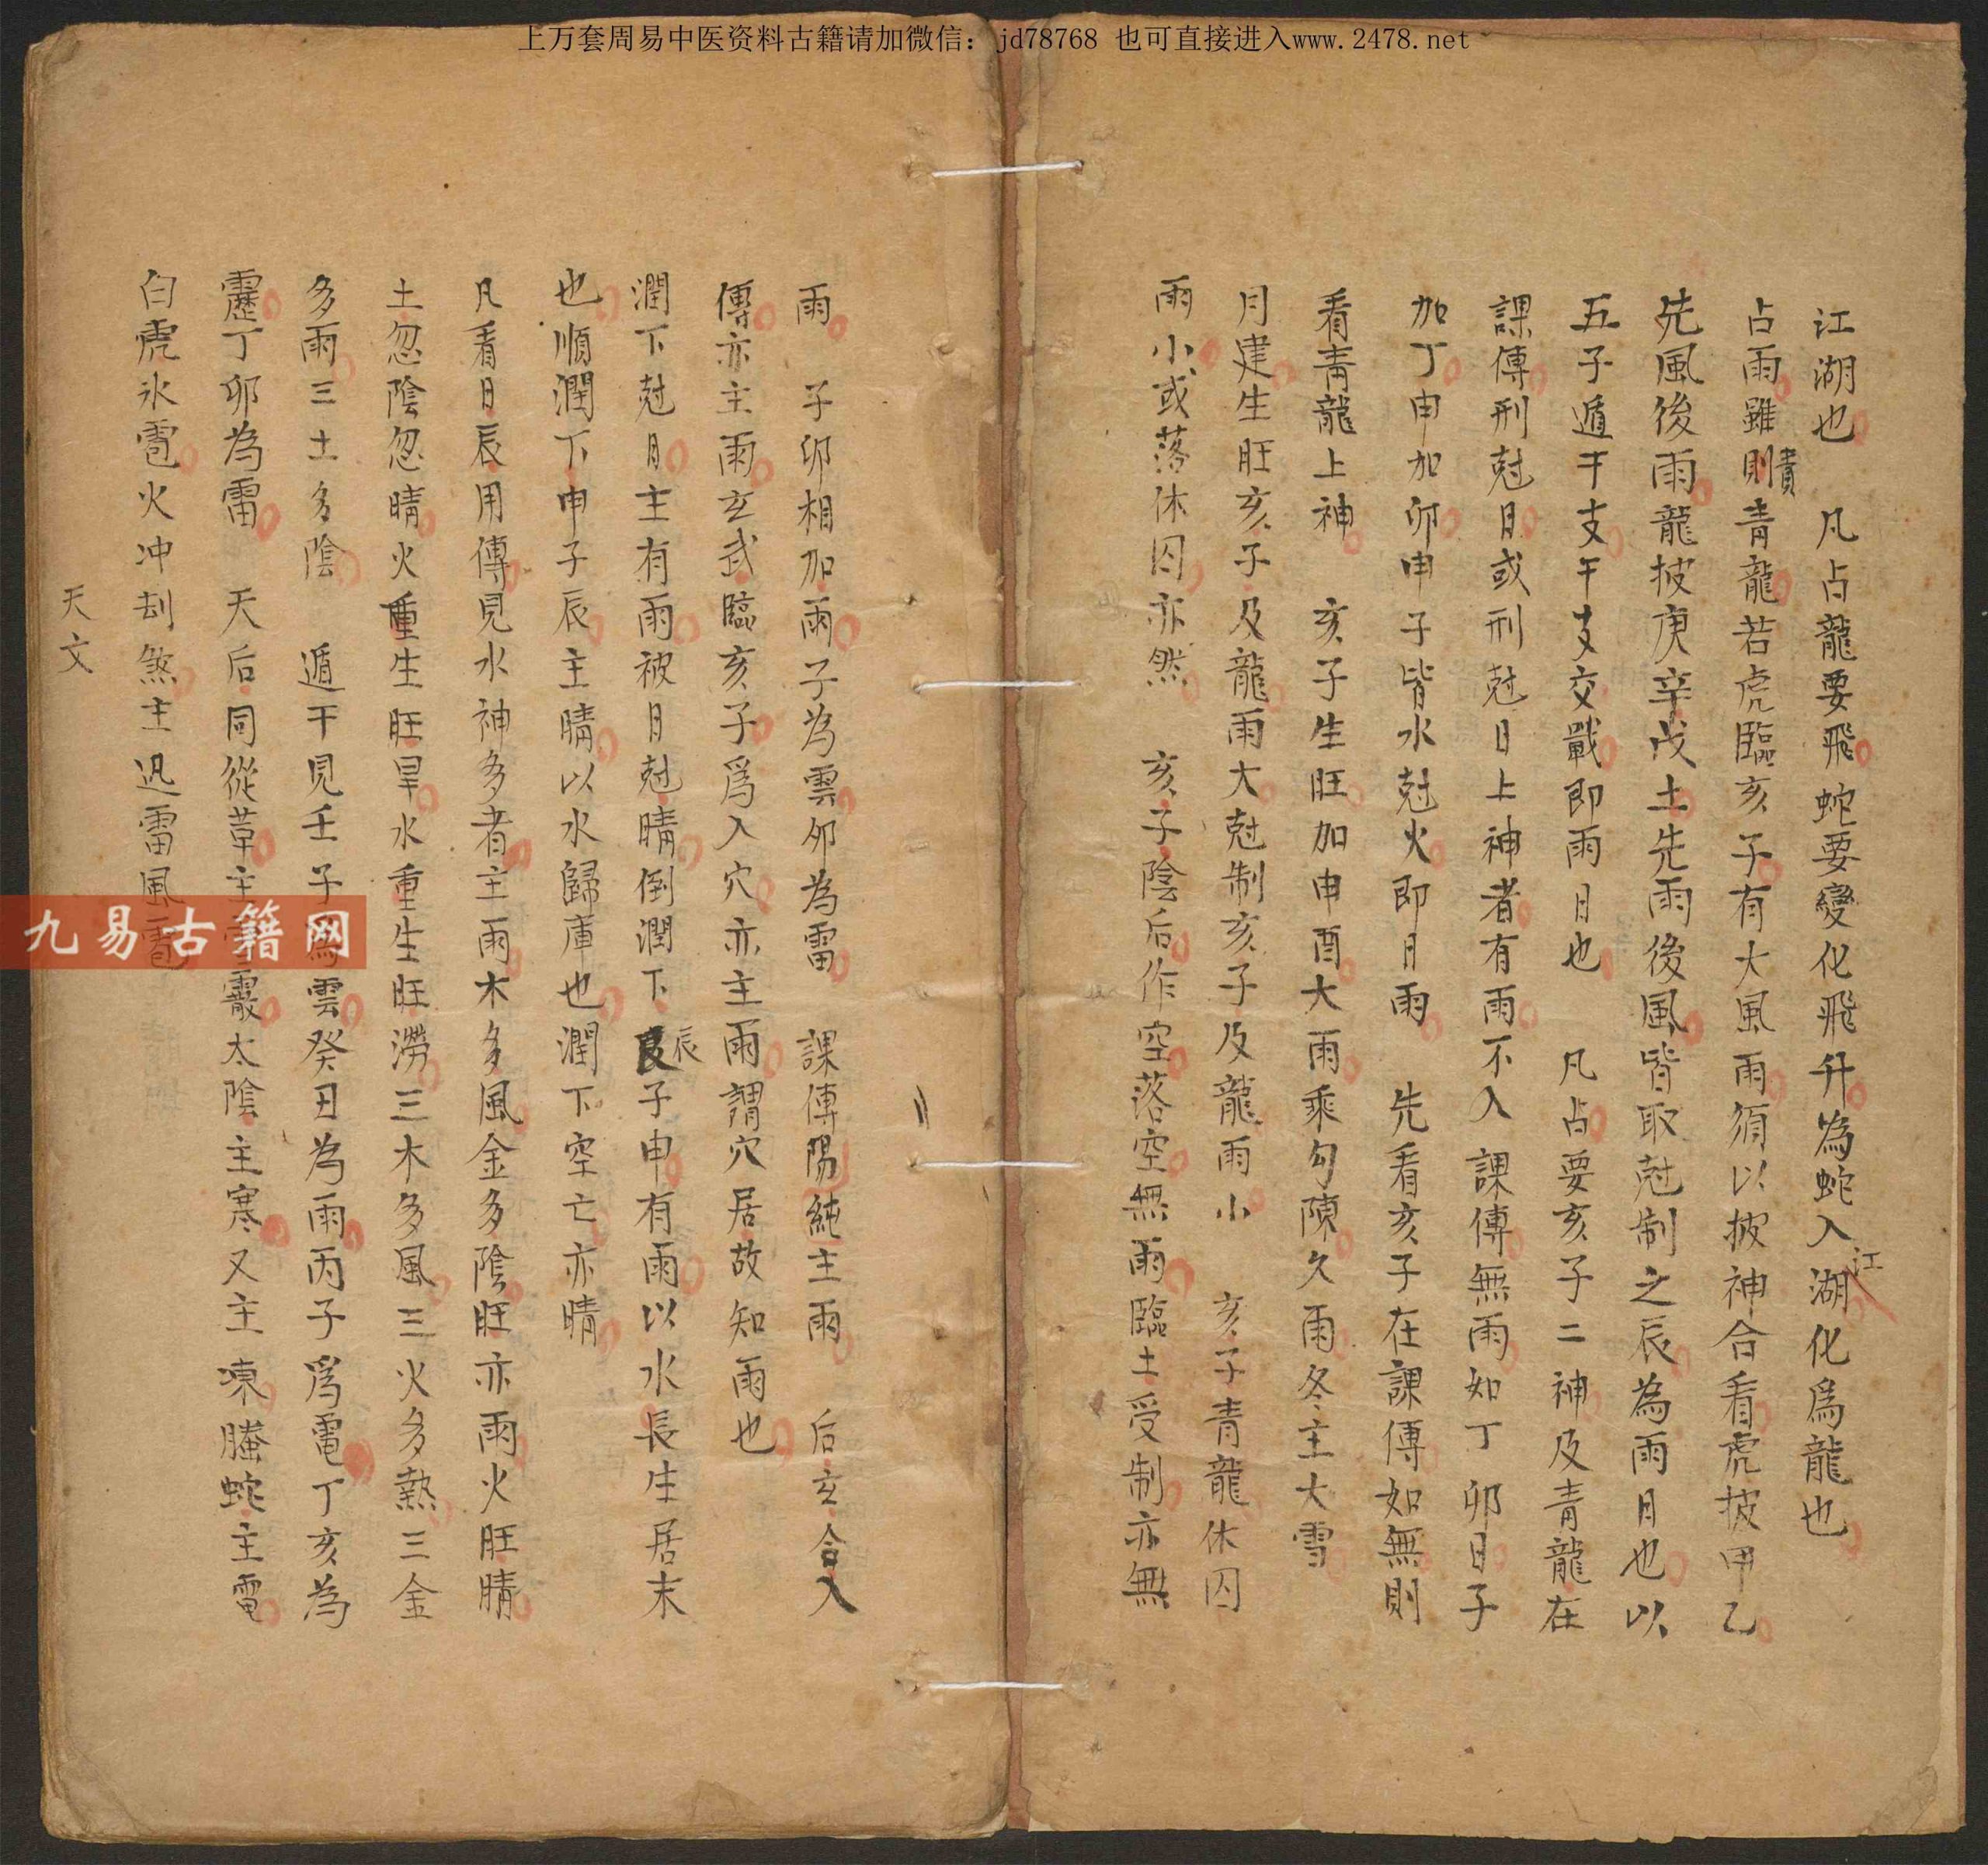 上万套周易中医资料古籍请加微信：jd78768 也可直接进入www.2478.net
江湖也　凡占龍要飛蛇要變化飛升為蛇入江湖化為龍也
占雨雖則責青龍若虎臨亥子有大風雨須以披神合看虎披甲乙
先風後雨龍披庚辛戊土先雨後風皆取尅制之辰為雨日也以
五子遁干支干支交戰即雨日也　凡占要亥子二神及青龍在
課傳刑尅日或刑尅日上神者有雨不入課傳無雨如丁卯日子
加丁申加卯申子皆水尅火即日雨　先看亥子在課傳如無則
看青龍上神　亥子生旺加申酉大雨乘勾陳久雨冬主大雪
月建生旺亥子及龍雨大尅制亥子及龍雨小　亥子青龍休囚
雨小或落休囚亦然　亥子陰后作空落空無雨臨土受制亦無
雨　子卯相加雨子為雲卯為雷　課傳陽純主雨　后玄合入
傳亦主雨玄武臨亥子為入穴亦主雨謂穴居故知雨也
潤下尅月主有雨被月尅晴倒潤下辰子申有雨以水長生居末
也順潤下申子辰主晴以水歸庫也潤下空亡亦晴
凡看日辰用傳見水神多者主雨木多風金多陰旺亦雨火旺晴
土忽陰忽晴火重生旺旱水重生旺澇三木多風三火多熱三金
多雨三土多陰　遁干見壬子為雲癸丑為雨丙子為電丁亥為
靂丁卯為雷　天后同從革主霰太陰主寒又主凍螣蛇主電
白虎氷雹火冲刦煞主迅雷風雹
天文
九易古籍网